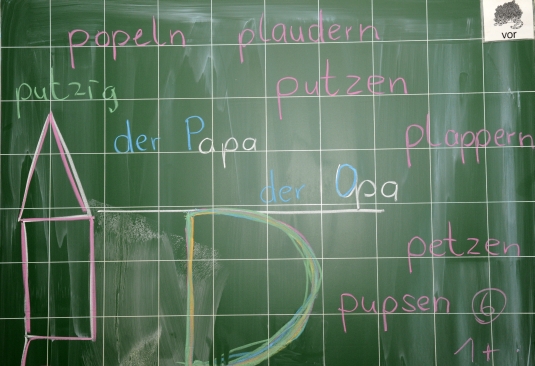 vor
popeln plaudern
putzig putzen
der Papa plappern
der Opa
petzen
pupsen 6
1+